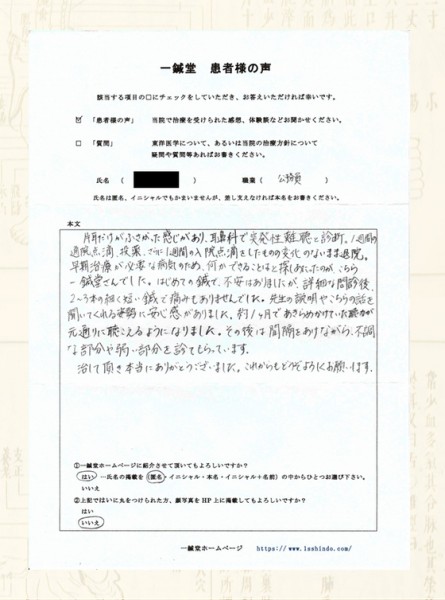 一鍼堂 患者様の声
該当する項目の□にチェックをしていただき、お答えいただければ幸いです。
☑ 「患者様の声」 当院で治療を受けられた感想、体験談などお聞かせください。
□ 「質問」 東洋医学について、あるいは当院の治療方針について
疑問や質問等あればお書きください。
氏名 ( ) 職業 ( 公務員 )
氏名は匿名、イニシャルでもかまいませんが、差し支えなければ本名をお書きください。
本文
片耳だけがふさがった感じがあり、耳鼻科で突発性難聴と診断。1週間の
通院点滴、投薬、さらに1週間の入院点滴をしたものの変化のないまま退院。
早期治療が必要な病気のため、何かできることはと探しあたったのが、こちら
一鍼堂さんでした。はじめての鍼で、不安はありましたが、詳細な問診後、
2〜3本の細く短い鍼で痛みもありませんでした。先生の説明やこちらの話を
聞いてくれる姿勢に安心感がありました。約1ヶ月であきらめかけていた聴力が
元通りに聴こえるようになりました。その後は間隔をあけながら、不調
な部分や弱い部分を診てもらっています。
治して頂き本当にありがとうございました。これからもどうぞよろしくお願いします。
①一鍼堂ホームページに紹介させて頂いてもよろしいですか?
はい ―氏名の掲載を (匿名・イニシャル・本名・イニシャル+名前) の中からひとつお選び下さい。
いいえ
②上記ではいに丸をつけられた方、顔写真を HP 上に掲載してもよろしいですか?
はい
いいえ
一鍼堂ホームページ https://www.isshindo.com/